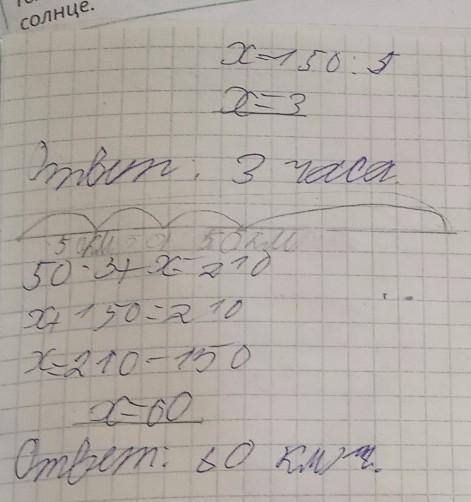 солнце.
x=150:5
x=3
Ответ: 3 часа.
50км 50км
50·3+x=210
x+150=210
x=210-150
x=60
Ответ: 60 км/ч.